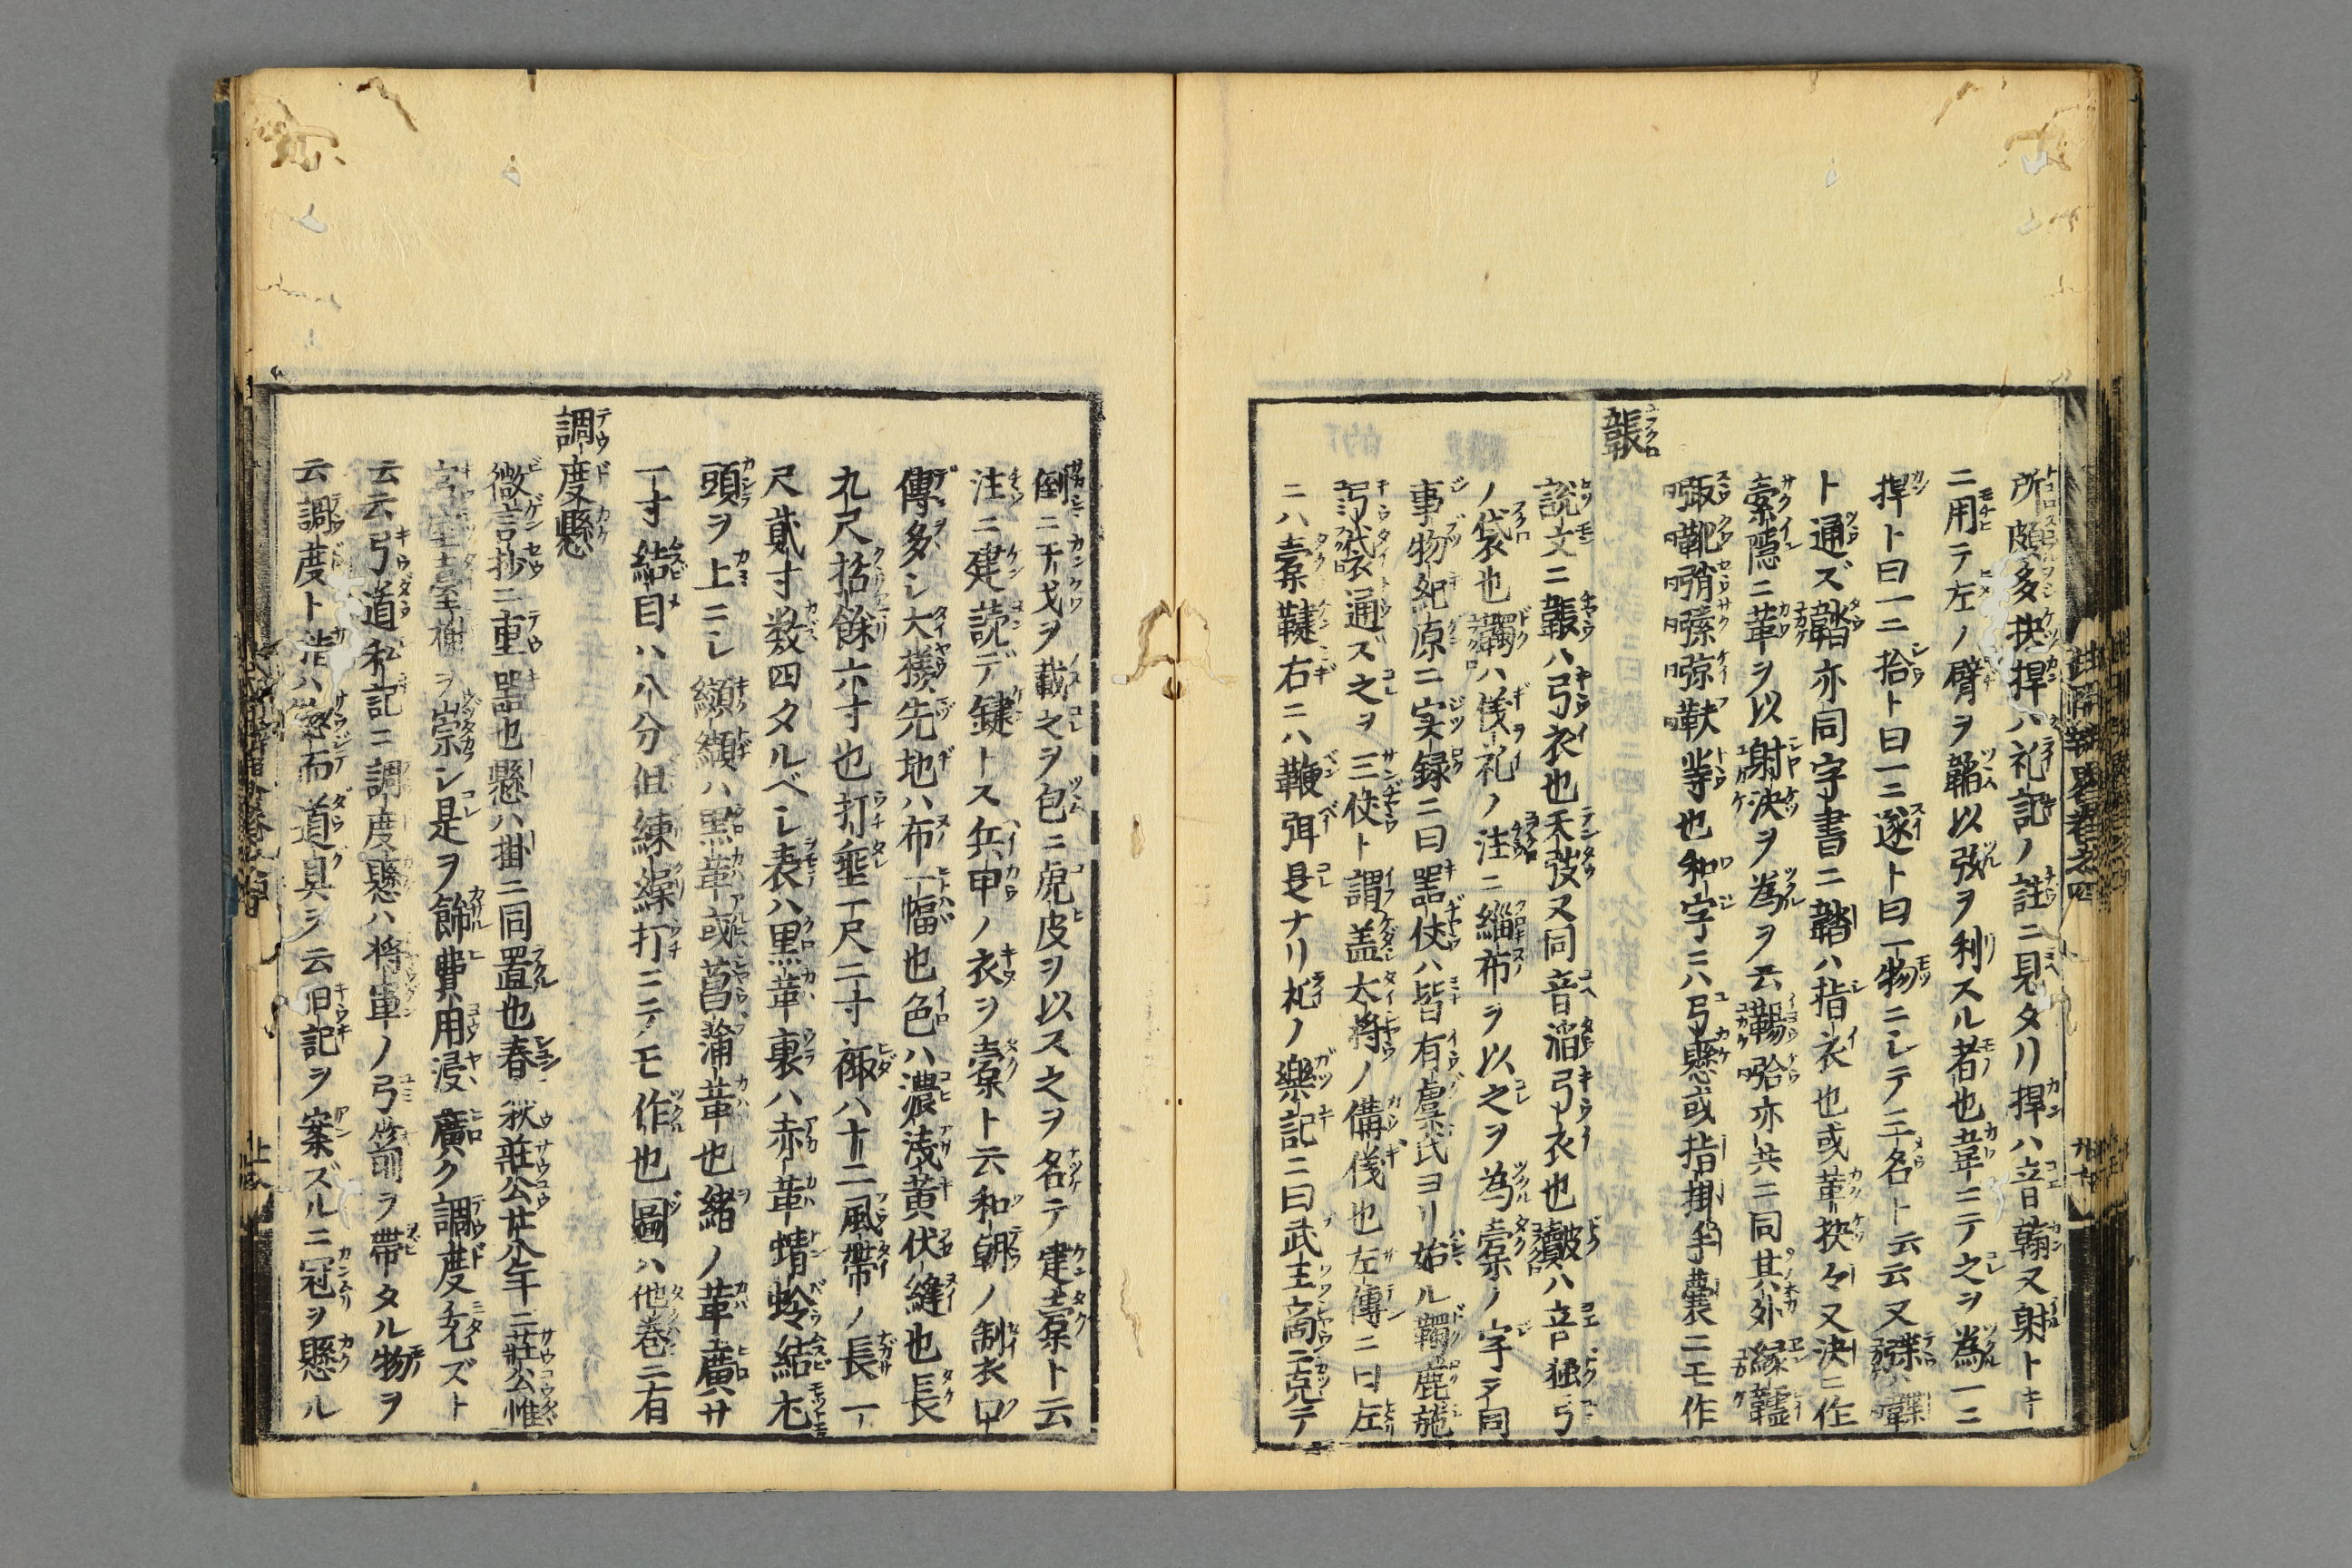 所頗多抉捍ハ礼記ノ註ニ見タリ捍ハ音翰又射トキ
ニ用テ左ノ臂ヲ韜以弦ヲ利スル者也韋ニテ之ヲ為一ニ
捍ト曰一ニ拾ト曰一ニ遂ト曰一物ニシテ三名ト云云又
ト通ズ韜亦同字書ニ韜ハ指衣也或革抉々又決ニ作
索隠ニ革ヲ以射決ヲ為ヲ云亦共ニ同其外
等也和字ニハ弓懸或指掛手嚢ニモ作
韔
説文ニ韔ハ弓衣也天弢又同音滔弓衣也ハ音独弓
ノ袋也韣ハ儀礼ノ注ニ緇布ヲ以之ヲ為櫜ノ字ヲ同
事物紀原ニ実録ニ曰器仗ハ皆有虞氏ヨリ始ル韣鹿施
弓袋通ズ之ヲ三仗ト謂盖大将ノ備儀也左傳ニ曰左
ニハ櫜鞬右ニハ鞭弭是ナリ礼ノ樂記ニ曰武王商ニ克テ
倒ニ干戈ヲ載之ヲ包ニ虎皮ヲ以ス之ヲ名テ建櫜ト云
注ニ建読デ鍵トス兵甲ノ衣ヲ櫜ト云和朝ノ制衣甲
傳多シ大様先地ハ布一幅也色ハ濃浅黄伏縫也長
九尺括餘六寸也打垂一尺二寸ハ十二風帯ノ長一
尺貳寸数四タルベシ表ハ黒革裏ハ赤革蜻蛉結尤
頭ヲ上ニシ纐纈ハ黒革或菖蒲革也緒ノ革廣サ
一寸結目ハ八分但練繰打ニテモ作也圖ハ他巻ニ有
調度懸
微言抄ニ重器也懸ハ掛ニ同置也春秋荘公廿八年ニ荘公惟
宮室臺榭ヲ崇シ是ヲ飾費用浸廣ク調度充ズト
云云弓道私記ニ調度懸ハ将軍ノ弓箭ヲ帯タル物ヲ
云調度ト者ハ惣而道具ヲ云旧記ヲ案ズルニ冠ヲ懸ル